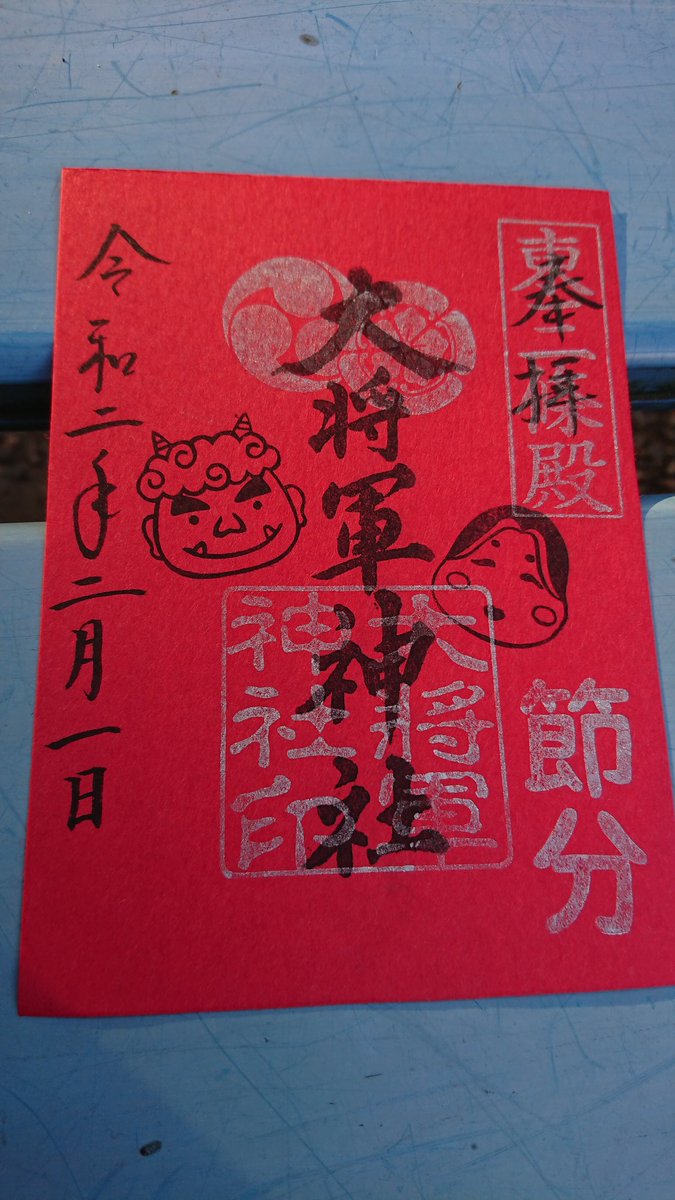 奉拝
東三條殿
節分
大将軍神社
大將軍
神社印
令和二年二月一日